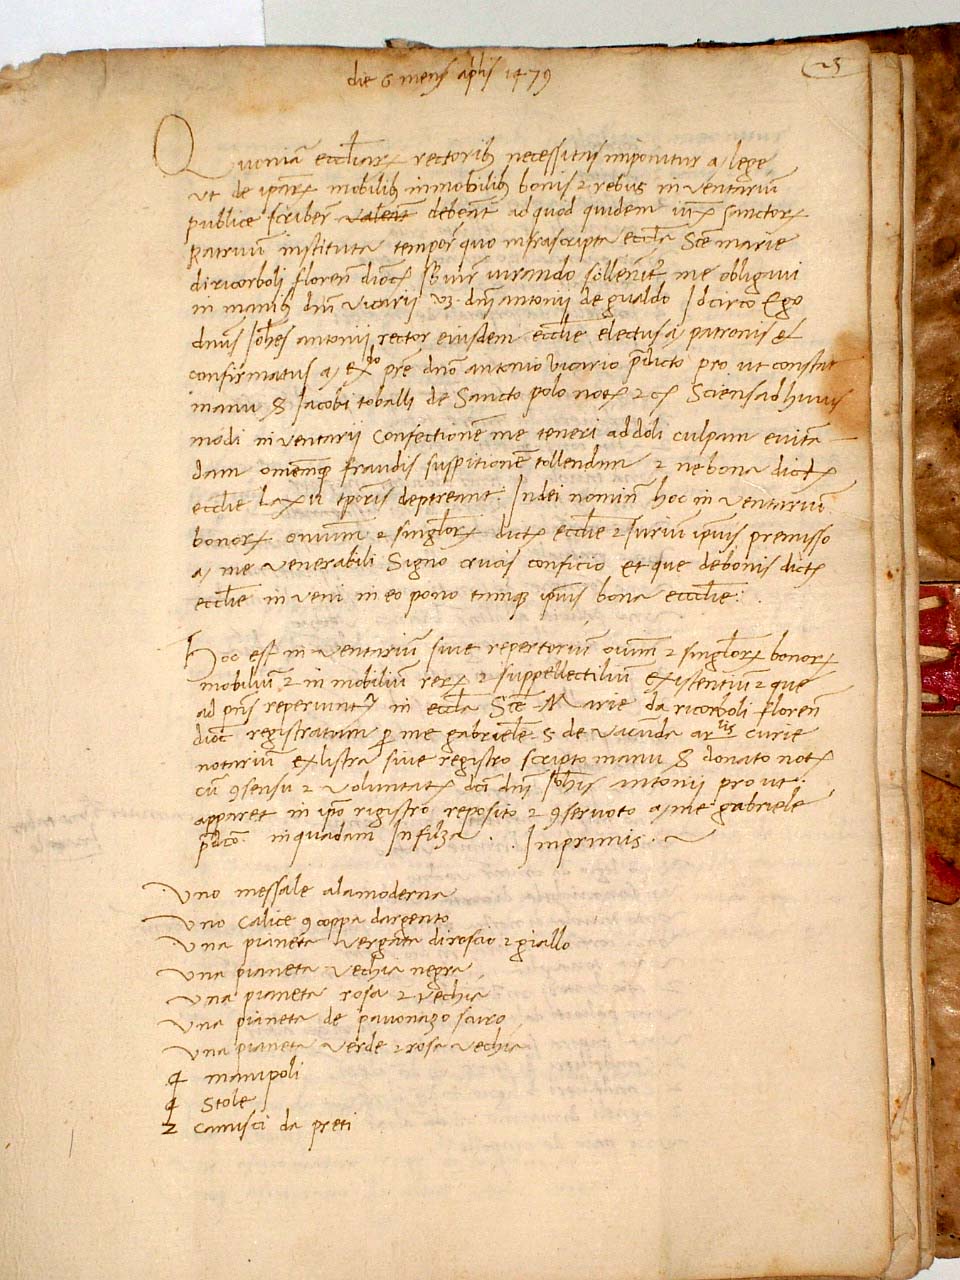 die 6 mens aplis 1479
23
Quoniā eccliaꝝ rectoribꝫ necessitas imponitur a lege
ut de ipaꝝ mobilibꝫ inmobilibꝫ bonis ⁊ rebus inventariū
publice scriberꝫ valeant debeāt ad quod quidem iuxͭ sanctoꝝ
patruum instituta tempore quo infrascripta ecclia Sce marie
diricorboli floren̄ dioc̄ iurando sollenīt me obligavi
in manibꝫ dn̄i vicarii vꝫ. dn̄i antonii de gualdo Idcirco Ego
dn̄us Ioh̄es antonii rector eiusdem ecclie electus a patronis et
confirmatus a dn̄o antonio vicario p̄dicto pro ut constat
manu S Iacobi toballi de Sancto polo noṭ Sciens ad huius
modi inventarii confectionem me teneri ad doli culpam evitā
dam omēmqꝫ fraudis suspitionem tollendam ⁊ ne bona dictꝫ
ecclie tp̄oris depereant. In dei nomine hoc inventarium
bonoꝝ omniū ⁊ singloꝝ dictꝫ ecclie ⁊ iuriū ip̄ius premisso
a me venerabili signo crucis conficio et que de bonis dictꝫ
ecclie inveni in eo pono tamqꝫ ip̄ius bona ecclie:
Hoc est inventariū sive repertoriū oīum ⁊ singloꝝ bonoꝝ
mobiliū ⁊ inmobiliū reꝝ ⁊ suppellectiliū existentiū ⁊ que
ad p̄ns reperiuntr in ecclia Sce Marie da ricorboli floren̄
dioc̄ registratum ꝑ me gabrielem S de curie
notariū ex listra sive registro scripto manu S donato noṭ
cū ꝯsensu ⁊ voluntate dc̄i dn̄i Ioh̄is antonii pro ut
apparet in ip̄o rigistro reposito ⁊ ꝯservato a me gabriele
p̄dco. in quadam Infilza . Imprimis .
Uno messale alamoderna
Uno Calice ꝯ coppa dargento
Una pianeta vergata di roscio ⁊ giallo
Una pianeta vechia negra
Una pianeta rosa ⁊ vechia
Una pianeta de pavonazo scuro
Una pianeta verde ⁊ rosa vechia
4 manipoli
4 Stole
2 camisci da preti